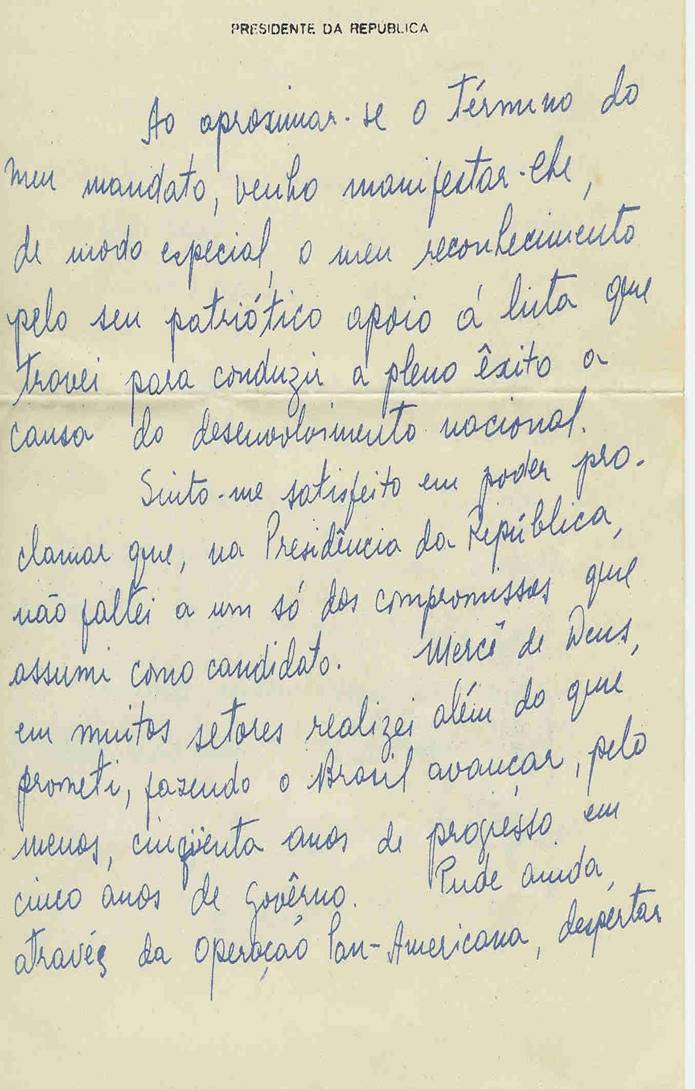 PRESIDENTE DA REPÚBLICA
Ao aproximar-se o término do
meu mandato, venho manifestar-lhe,
de modo especial, o meu reconhecimento
pelo seu patriótico apoio á luta que
travei para conduzir a pleno êxito a
causa do desenvolvimento nacional.
Sinto-me satisfeito em poder pro-
clamar que, na Presidência da República,
não faltei a um só dos compromissos que
assumi como candidato. Mercê de Deus,
em muitos setores realizei além do que
prometi, fazendo o Brasil avançar, pelo
menos, cinqüenta anos de progresso em
cinco anos de Govêrno. Pude ainda,
através da Operação Pan-Americana, despertar